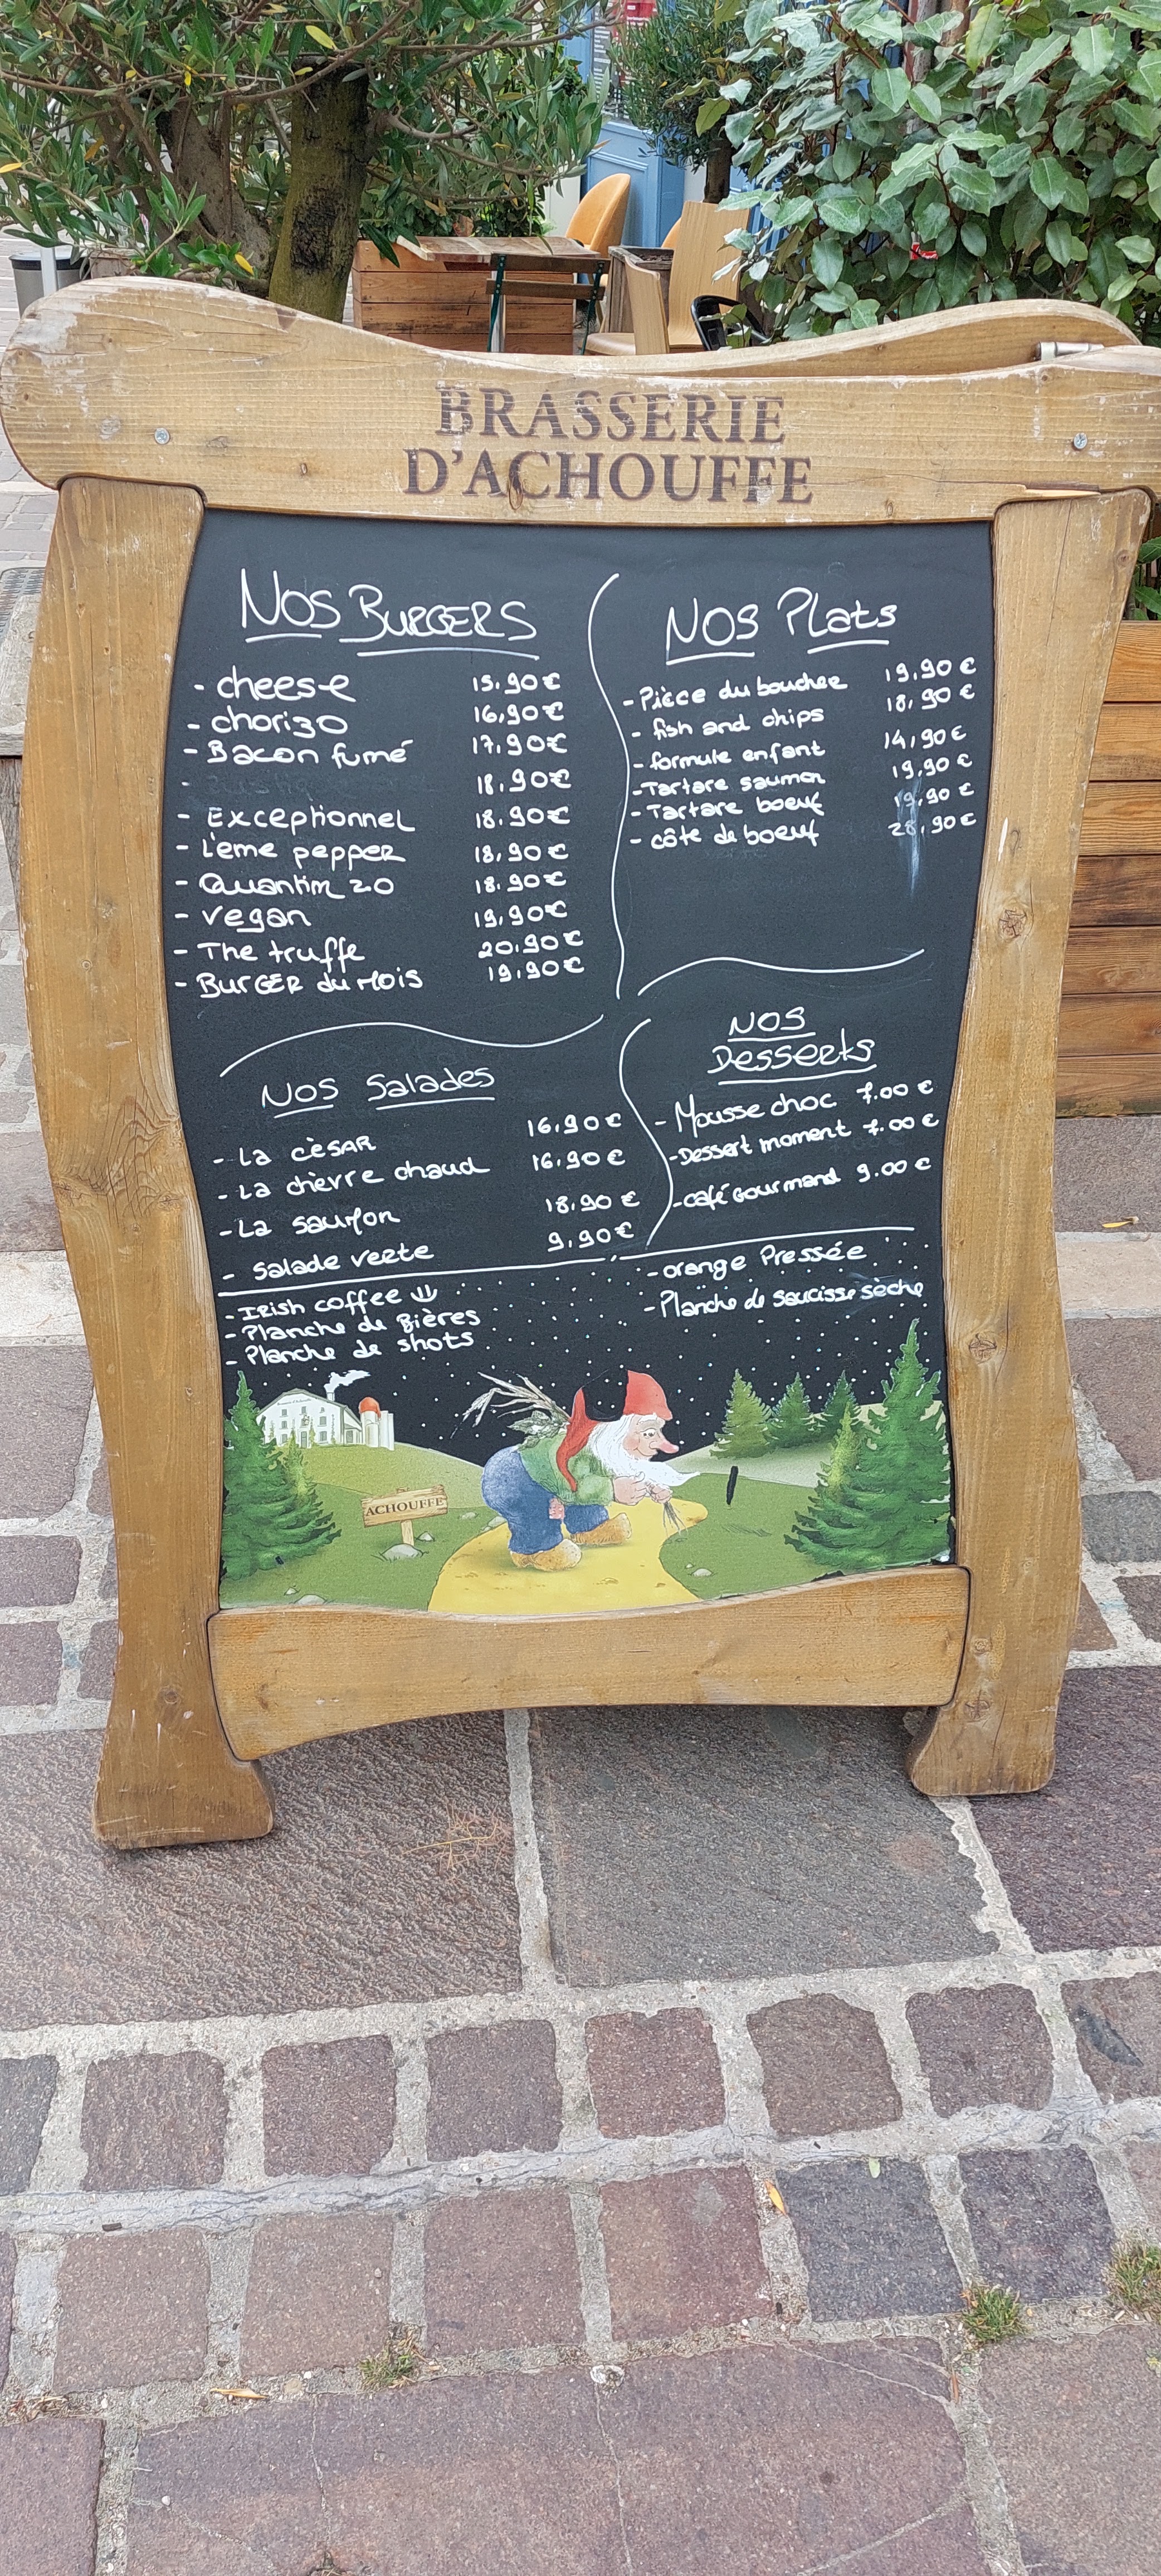 BRASSERIE
D'ACHOUFFE
Nos Burgers
- cheese 15.90€
- chorizo 16,90€
- Bacon fumé 17.90€
- 18.90€
- Exceptionnel 18.90€
- L'eme pepper 18,90€
- Quantim 20 18.90€
- vegan 19,90€
- The truffe 20.90€
- BURGER du mois 19,90€
Nos Plats
- Pièce du boucher 19,90€
- fish and chips 18,90€
- formule enfant 14,90€
- Tartare saumon 19,90€
- Tartare boeuf 19,90€
- côte de boeuf 28,90€
Nos Salades
- La cèsar 16.90€
- La chèvre chaud 16.90€
- La saumon 18,90€
- Salade verte 9,90€
Nos
Desserts
- Mousse choc 7.00€
- Dessert moment 7.00€
- café Gourmand 9.00€
- IRish coffee
- Planche de Bières
- Planche de shots
- orange Pressée
- Planche de Saucisse sèche
ACHOUFFE